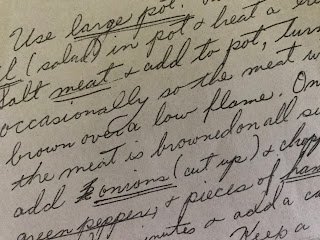 Use large pot.
(salad) in pot & heat a
Salt meat & add to pot, turn
occasionally so the meat w
brown over a low flame. On
the meat is browned on all si
add onions (cut up) & chopp
green peppers, & pieces of ham
minutes & add a ca
Keep a